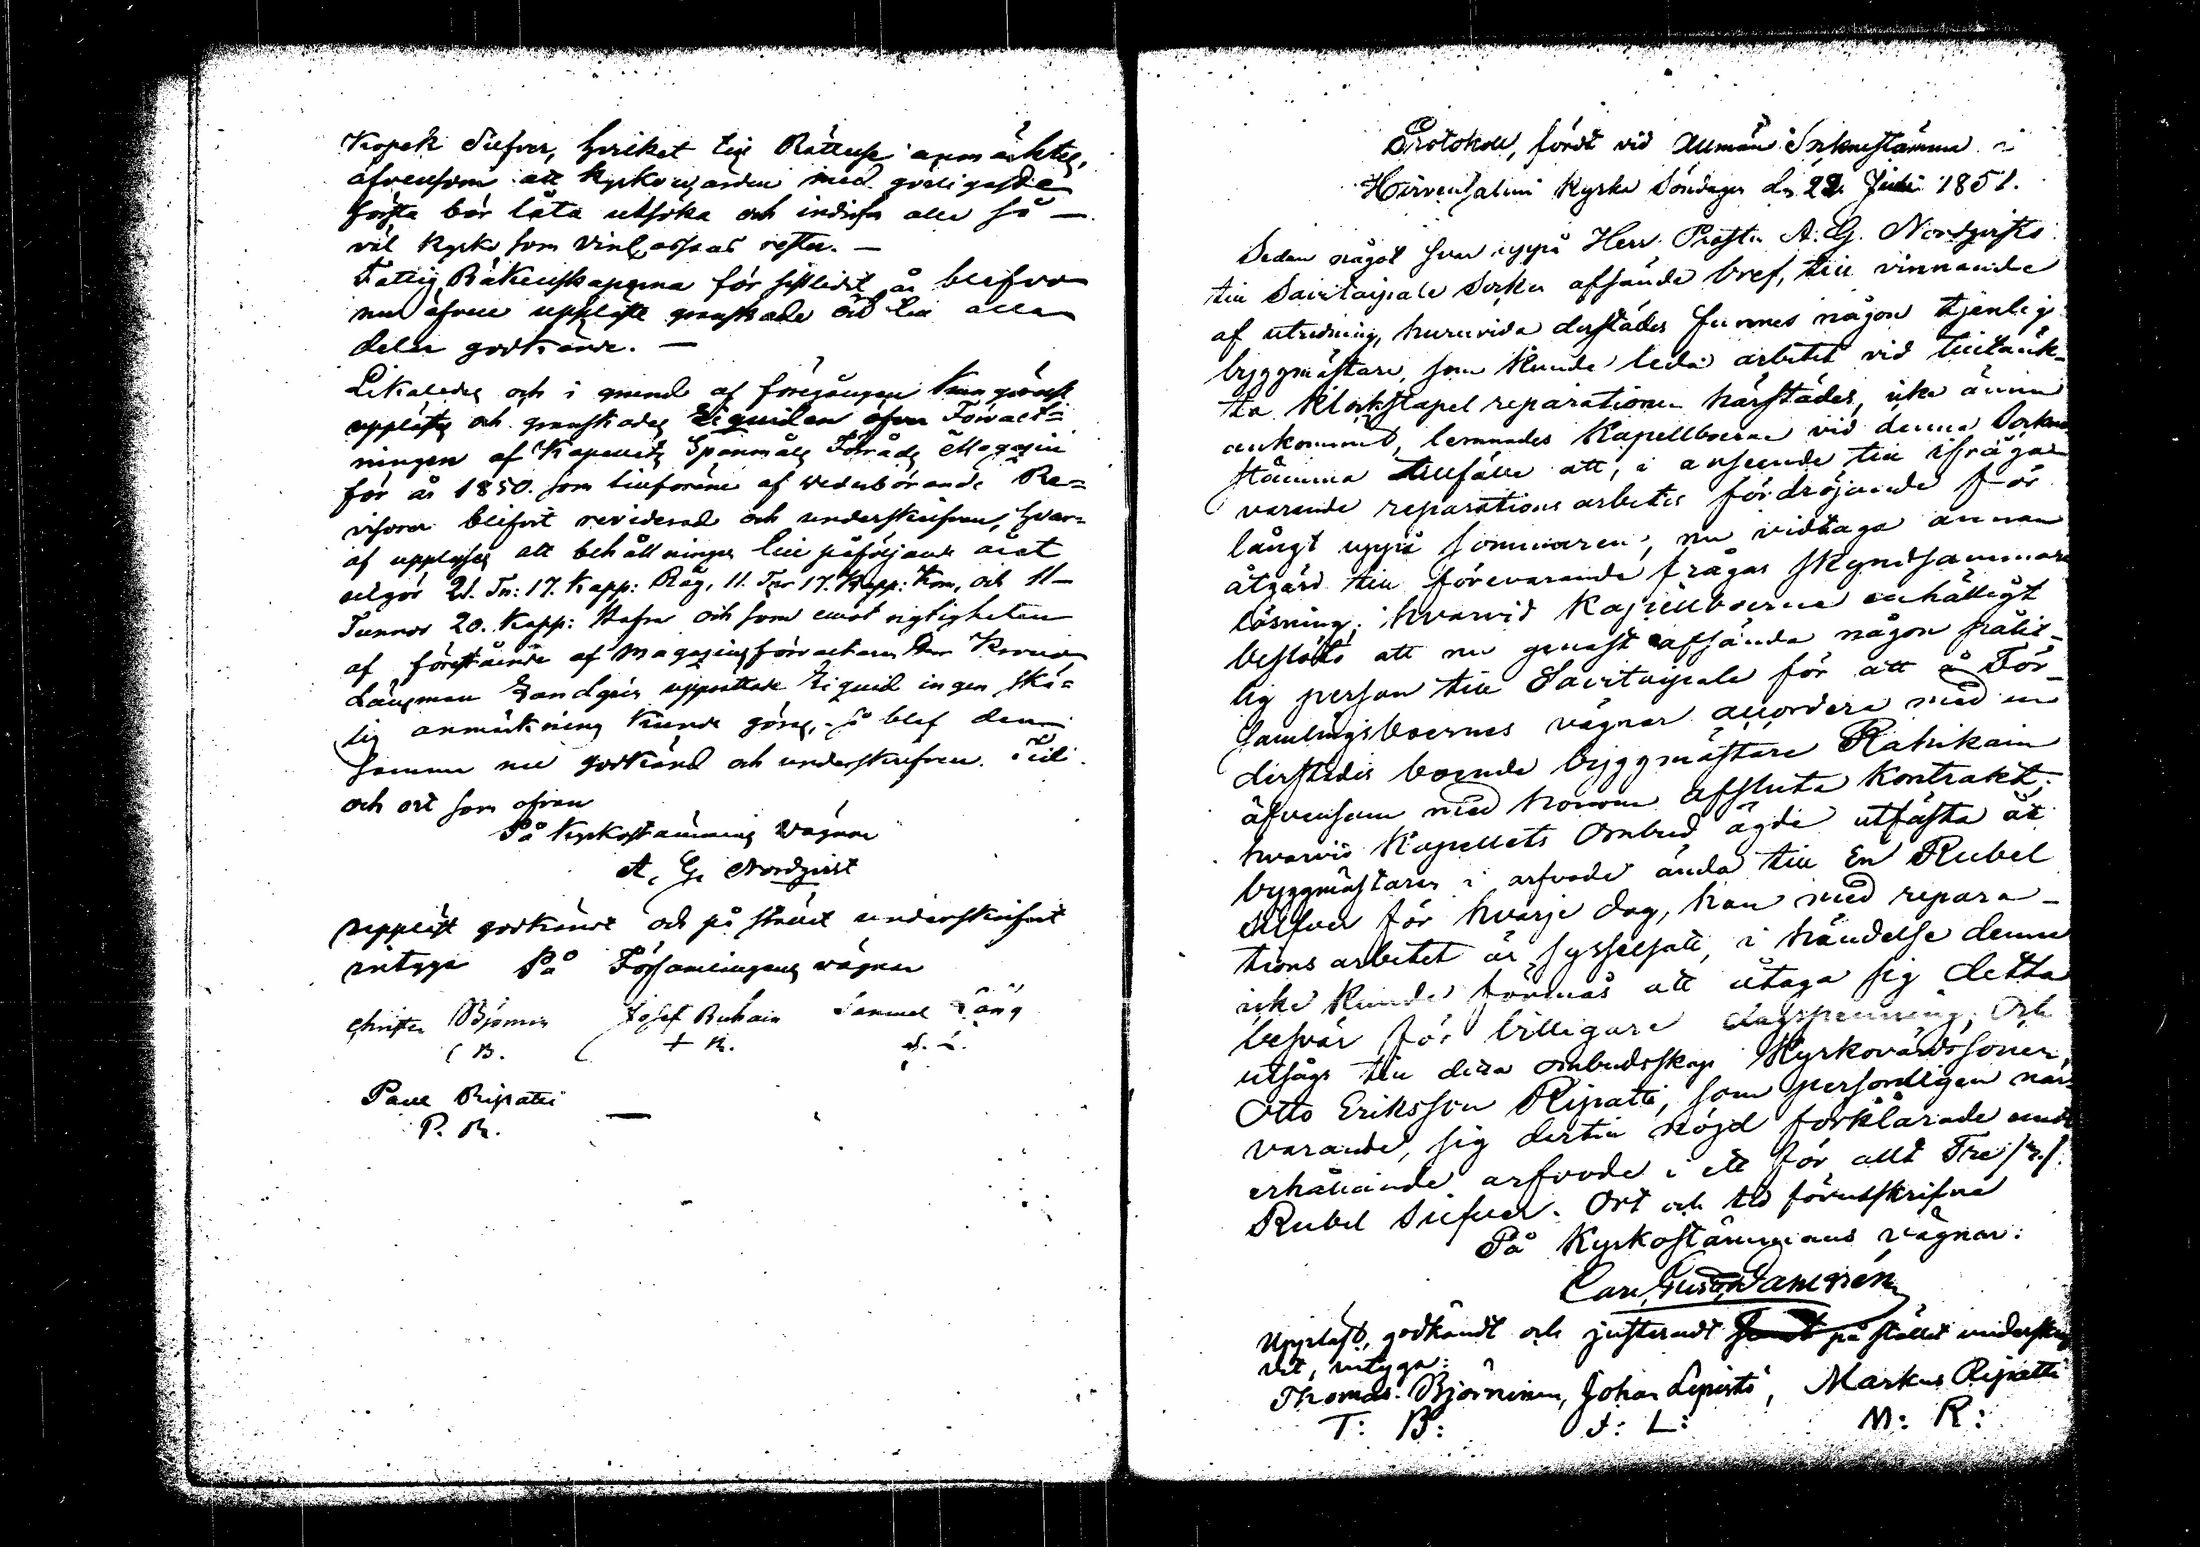 Kopek Silfver, hvilket till Rättelse anmärktes,
äfvensom att Kyrkovärden med görligaste
första bör låta utsöka och indrifva alla så-
väl Kyrko som Vinkassans rester. —
Fattig Räkenskaperna för sistlidit år blefvo
nu äfven uppläste granskade och till alla
delar godkände. —
Likaledes och i grund af föregången kungörelse
upplästes och granskades Liquiden öfver Förvalt-
ningen af Kapellets Spanmåls Förråds Magazin
för år 1850. som tillförene af vederbörande Re-
visorer blifvit reviderad och underskrifven, hvar-
af upplystes att behållningen till påföljande året
utgör 21. Tn: 17. Kapp: Råg, 11. Tnr 17. Kapp: Korn, och 11-
Tunnor 20. Kapp: Hafra och som emot rigtigheten
af förestående af Magazins förvaltaren Herr Krono
Länsman uppsattade Liquid ingen skä-
lig anmärkning kunde göras, så blef den
samma nu godkänd och underskrifven. Tid
och ort som ofvan
På Kyrkostämmans Vägnar
A. G. Nordqvist
Uppläst godkändt och på stället underskrifvit
intyga På Församlingens vägnar
Christer Björnin Josef Ruhain Samuel Läng
C B. + R. S. L.
Paul Ripatti
P. R. —
Protokoll, fördt vid Allmän Sockenstämma i
Hirvensalmi Kyrka Söndagen den 29 1851.
Sedan något svar uppå Herr Prosten A. G. Nordqvists
till Savitaipale Socken afsände bref, till vinnande
af utredning, huruvida derstädes funnes någon tjenlig
byggmästare, som kunde leda arbetet vid tilltänk-
ta Klockstapel reparationen härstädes, icke ännu
ankommit, lemnades Kapellboerne vid denna Socken
stämma tillfälle att, i anseende till ifråga-
varande reparations arbetes fördröjande för
långt uppå sommaren, nu vidtaga annan
åtgärd till förevarande frågas skyndsammare
lösning; hvarvid Kapellboerne enhälligt
beslöto att nu genast afsända någon pålit-
lig person till Savitaipale för att å För-
samlingsboernes vägnar accordera med en
derstedes boende byggmästare Rahikain
äfvensom med honom afsluta Kontrakt;
hvarvid Kapellets Ombud ägde utfästa åt
byggmästaren i arfvode ända till En Rubel
Silfver för hvarje dag, han med repara-
tions arbetet är sysselsatt, i händelse denne
icke kunde förmås att åtaga sig detta
besvär för billigare dagspenning, Och
utsågs till detta ombudsskap Kyrkovärdssonen,
Otto Eriksson Ripatti, som personligen när-
varande, sig dertill nöjd förklarade emot
erhållande arfvode i ett för allt Tre /3./
Rubel Silfver. Ort och tid förutskrifne
På Kyrkostämmans vägnar:
Carl Gustaf
Uppläst, godkändt och justeradt på stället underskrif
vit, intyga:
Thomas Björninen, Johan Lepistö, Markus Ripatti
T: B: J: L: M: R: